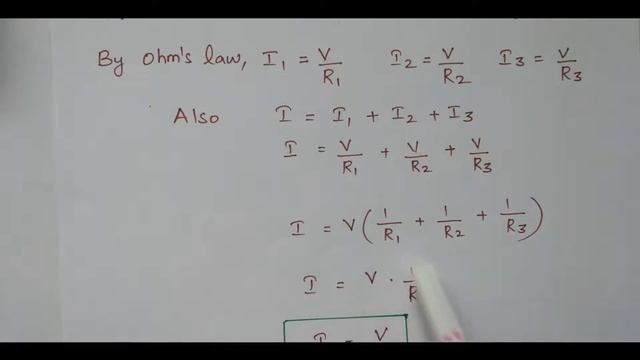 By Ohm's law, I₁ = V/R₁ I₂ = V/R₂ I₃ = V/R₃
Also I = I₁ + I₂ + I₃
I = V/R₁ + V/R₂ + V/R₃
I = V(1/R₁ + 1/R₂ + 1/R₃)
I = V · 1/R
I = V